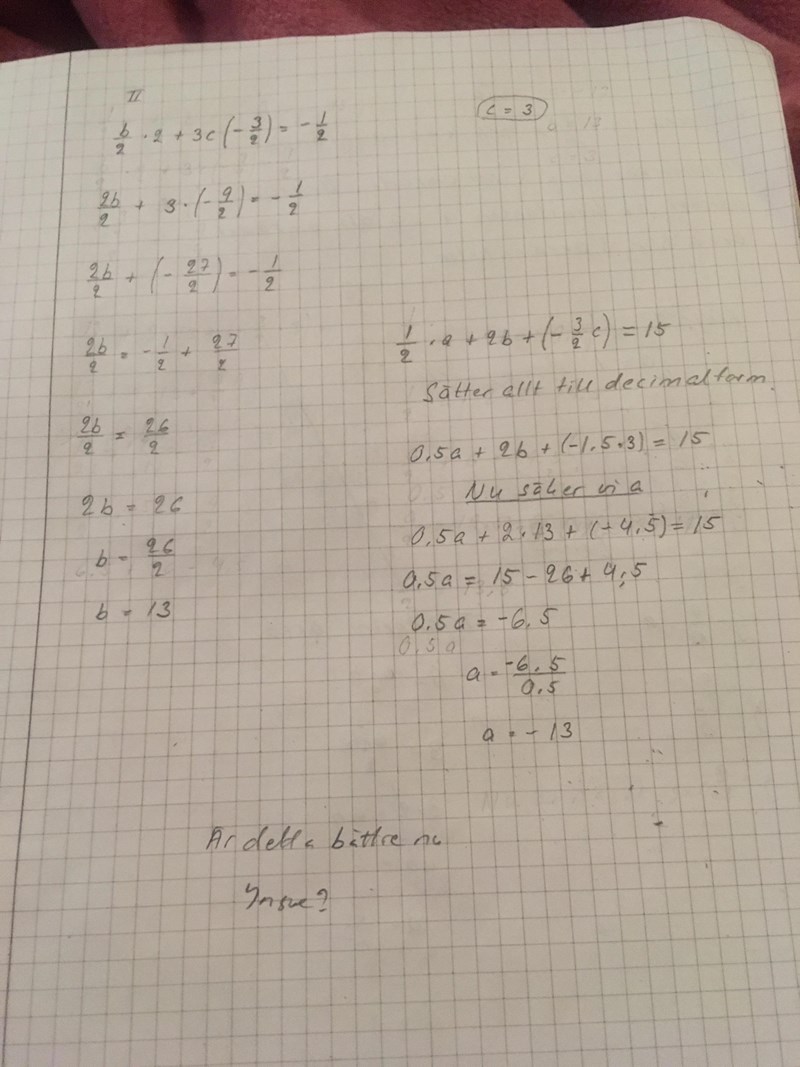 II
b/2 · 2 + 3c(-3/2) = -1/2
2b/2 + 3·(-9/2) = -1/2
2b/2 + (-27/2) = -1/2
2b/2 = -1/2 + 27/2
2b/2 = 26/2
2b = 26
b = 26/2
b = 13
c = 3
1/2 · a + 2b + (-3/2 c) = 15
Sätter allt till decimalform.
0.5a + 2b + (-1.5·3) = 15
Nu söker vi a
0.5a + 2·13 + (-4.5) = 15
0.5a = 15 - 26 + 4,5
0.5a = -6.5
0.5a
a = -6.5/0.5
a = -13
Är detta bättre nu
Yngve?